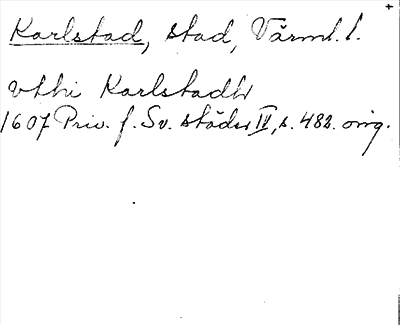 Karlstad, stad, Värml. l.
vthi Karlstadh
1607 Priv. f. Sv. städer IV, s. 482. orig.